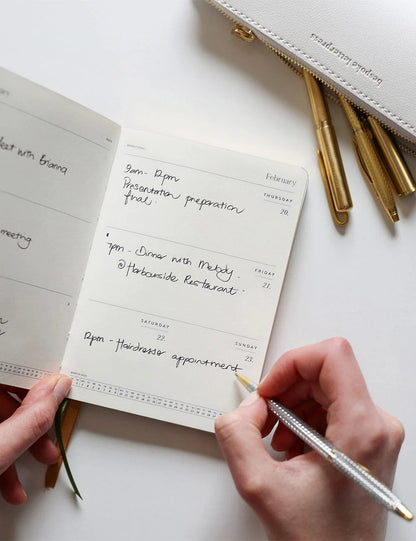 bespoke letterpress
meeting
February
THURSDAY
20.
9am - 12pm
Presentation preparation
final.
FRIDAY
21.
7pm - Dinner with Melody.
@Harbourside Restaurant.
SATURDAY
22.
SUNDAY
23.
12pm - Hairdresser appointment